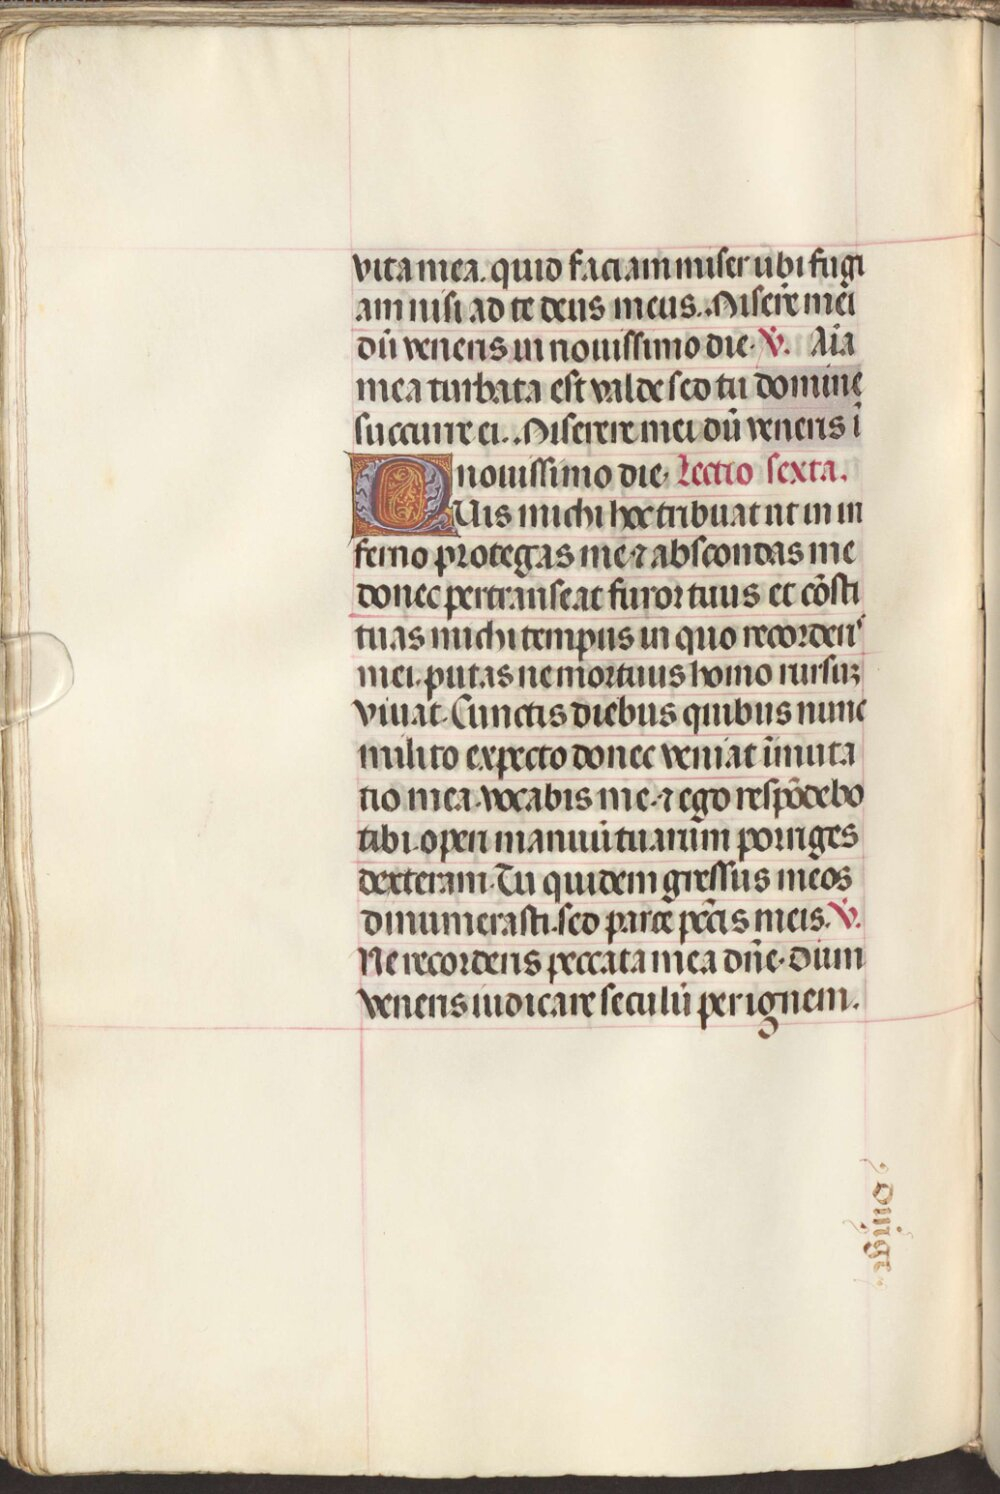 vita mea. quid faciam miser ubi fugi
am nisi ad te deus meus. Miserẽ mei
dũ veneris in nouissimo die. V̇. Aĩa
mea turbata est valde sed tu domine
succurre ei. Miserere mei dũ veneris ĩ
nouissimo die. Lectio sexta.
QUis michi hoc tribuat ut in in
ferno protegas me ⁊ abscondas me
donec pertranseat furor tuus et cõsti
tuas michi tempus in quo recorderis
mei. putas ne mortuus homo rursuz
viuat. Cunctis diebus quibus nunc
milito expecto donec veniat ĩmuta
tio mea. vocabis me. ⁊ ego respõdebo
tibi. operi manuũ tuarum porriges
dexteram. Tu quidem gressus meos
dinumerasti. sed parce pctĩs meis. V̇.
Ne recorderis peccata mea dñe. Dum
veneris iudicare seculũ per ignem.
Dirige